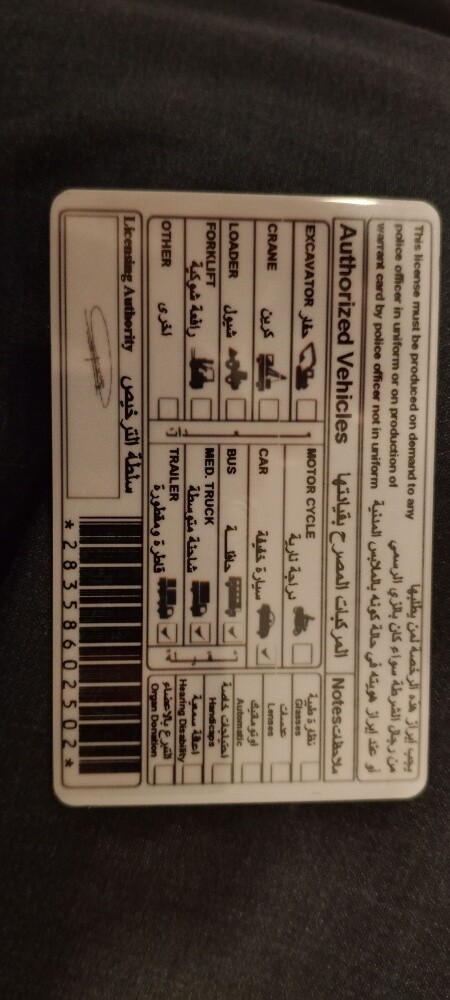 This license must be produced on demand to any
police officer in uniform or on production of
warrant card by police officer not in uniform
يجب إبراز هذه الرخصة لمن يطلبها
من رجال الشرطة سواء كان بالزي الرسمي
أو عند إبراز هويته في حالة كونه بالملابس المدنية
Authorized Vehicles المركبات المصرح بقيادتها
Notes ملاحظات
EXCAVATOR حفار
CRANE كرين
LOADER شيول
FORKLIFT رافعة شوكية
OTHER اخرى
MOTOR CYCLE دراجة نارية
CAR سيارة خفيفة
BUS حافلة
MED. TRUCK شاحنة متوسطة
TRAILER قاطرة ومقطورة
نظارة طبية
Glasses
عدسات
Lenses
اوتوماتيك
Automatic
احتياجات خاصة
Handicaps
اعاقة سمعية
Hearing Disability
التبرع بالاعضاء
Organ Donation
Licensing Authority سلطة الترخيص
*28358602502*